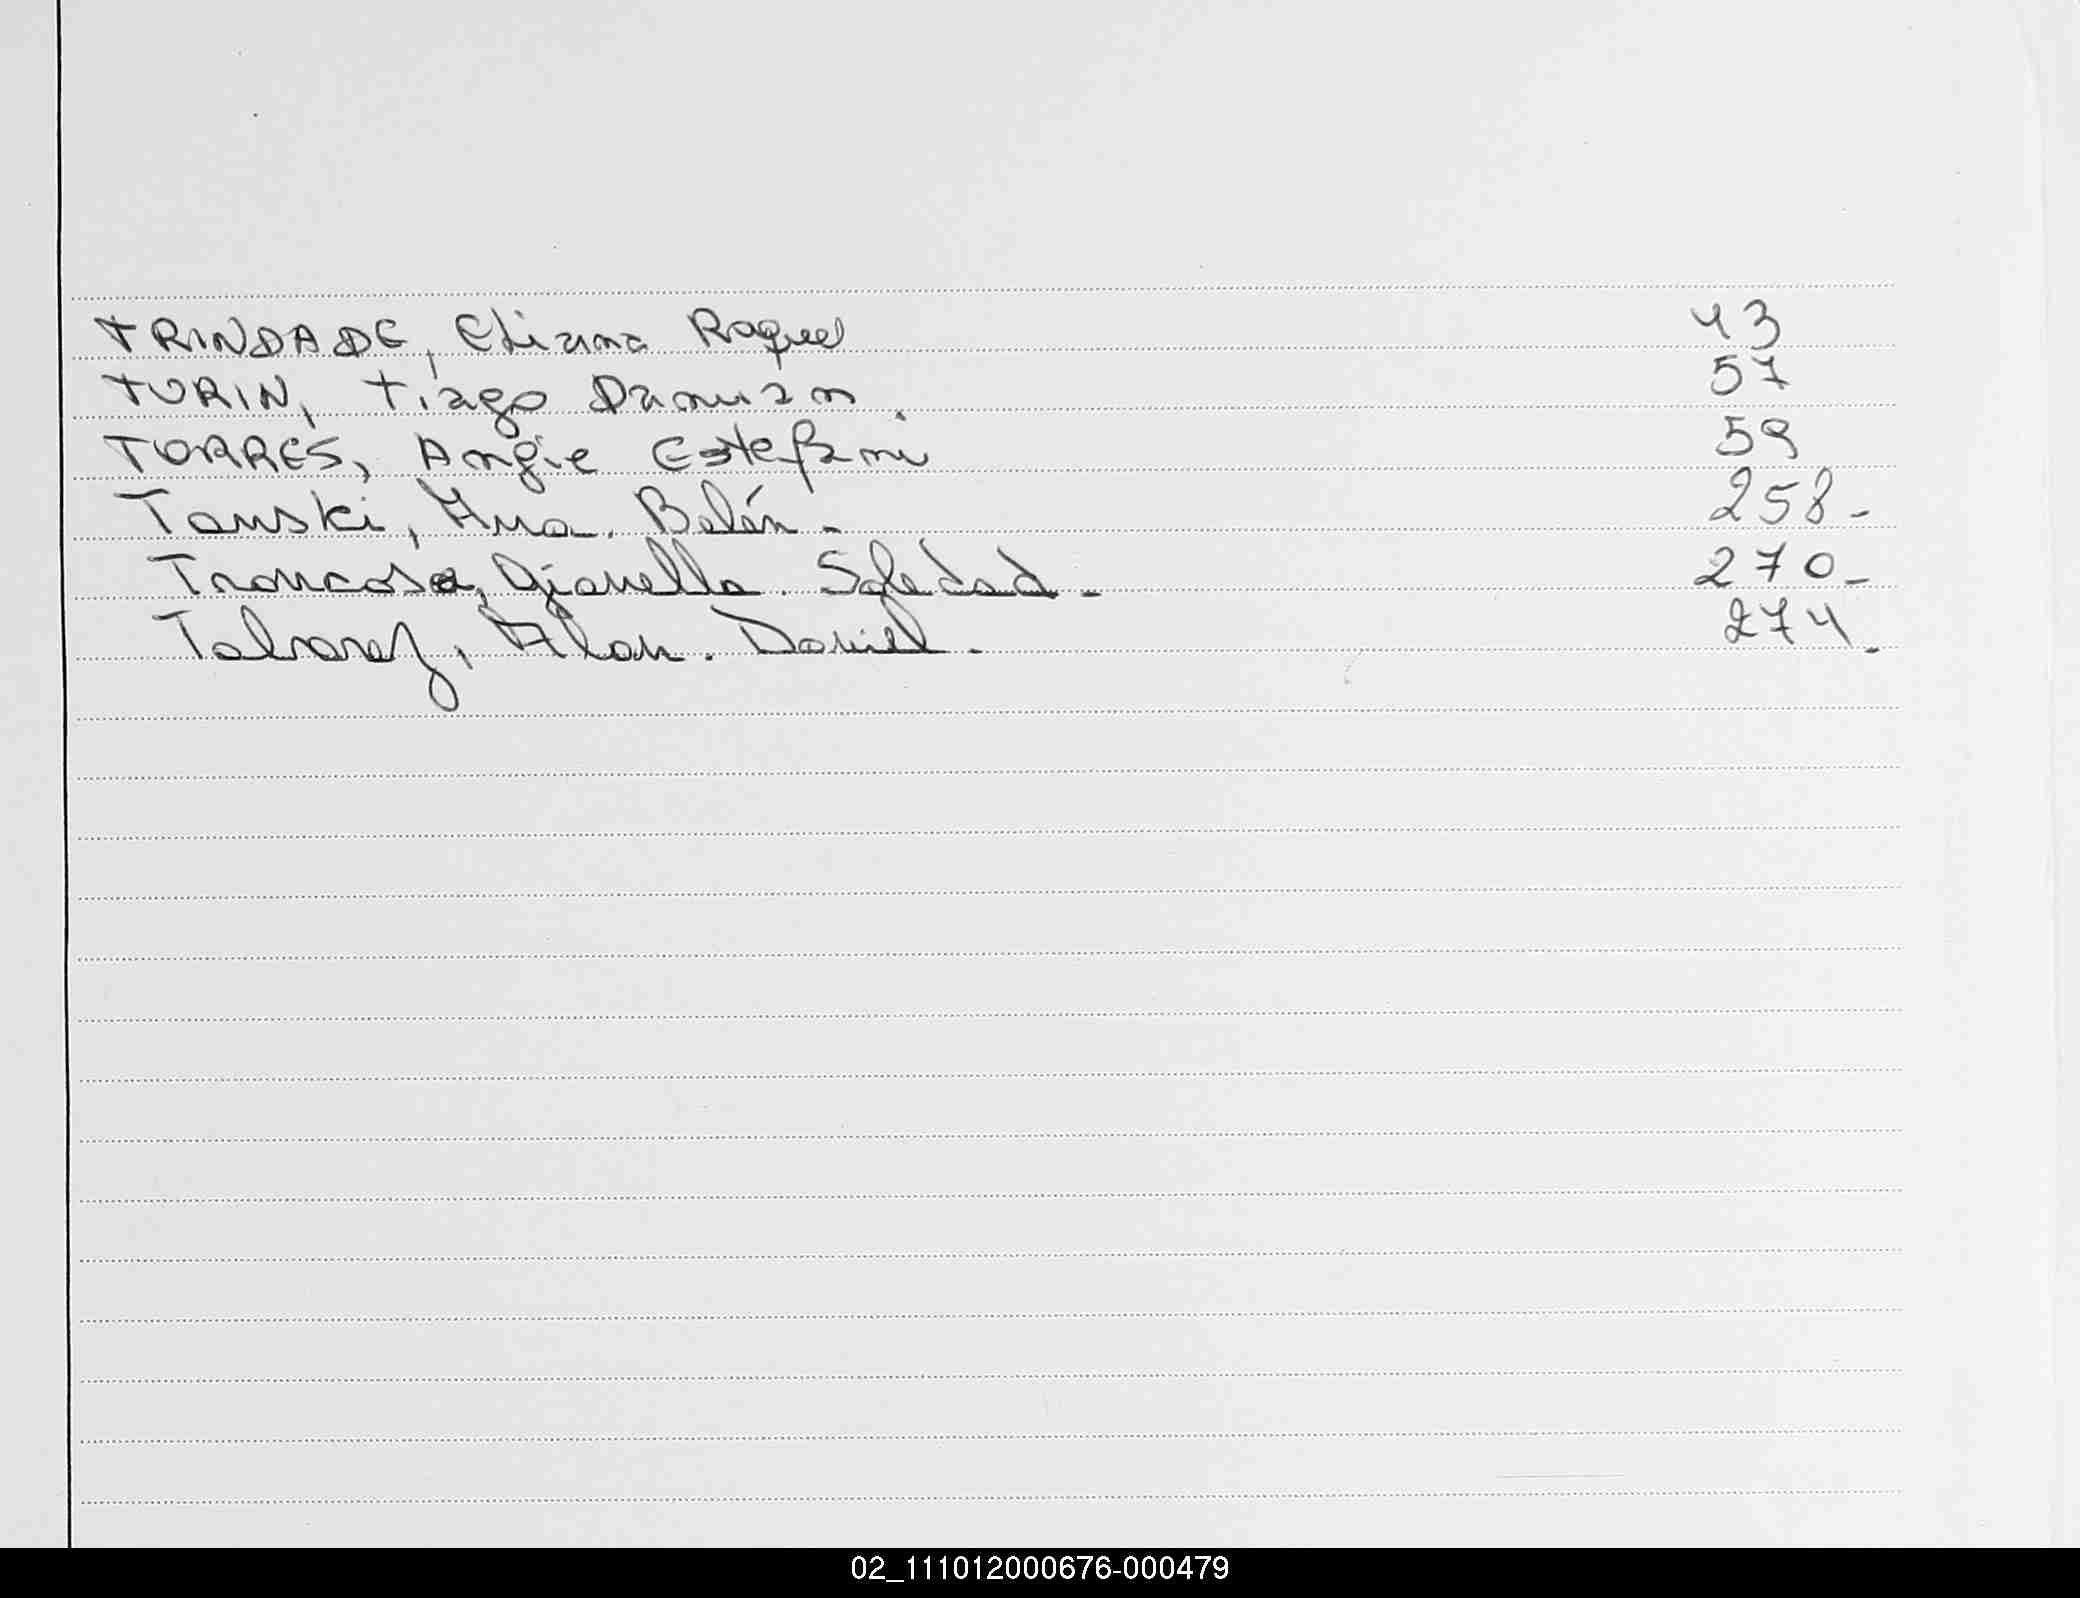 TRINDADE, Eliana Raquel 43
TURIN, Tiago Damian. 57
TORRES, Angie Estefani 59
Tanski, Ana. Belén.- 258-
Troncoso, Gianella. Soledad.- 270-
Talvarez, Alan. Daniel.- 274-
02_111012000676-000479